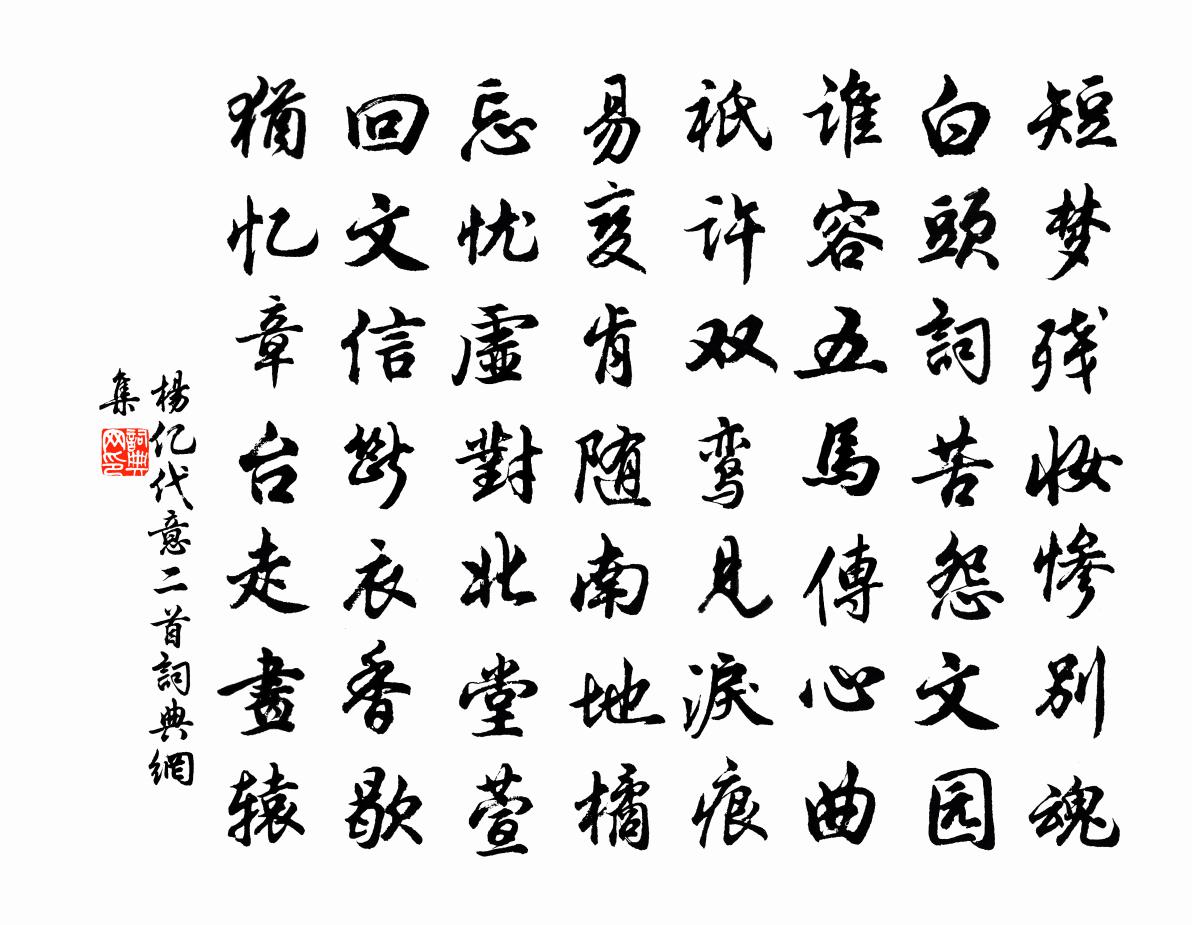 短梦残妆惨别魂
白頭詞苦怨文园
谁容五馬傳心曲
祇许双鸾見淚痕
易变肯随南地橘
忘忧虚對北堂萱
回文信断衣香歇
猶忆章台走畫辕
楊亿代意二首詞典網
集
詞典
网印